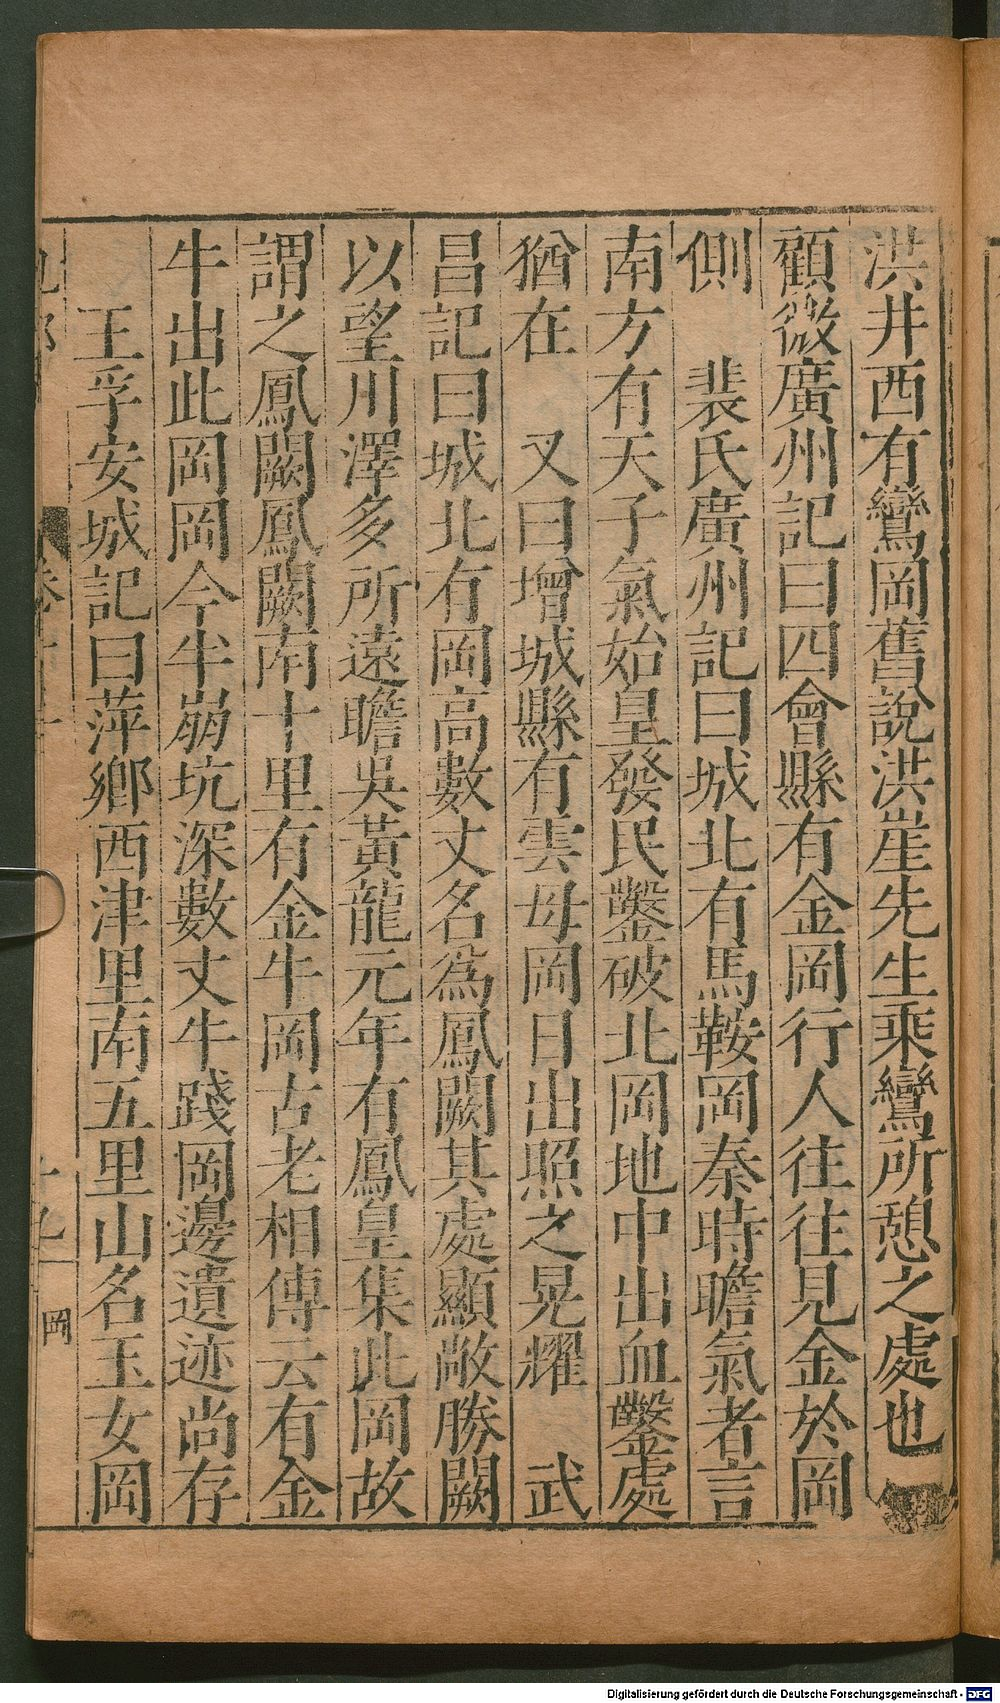 洪井西有鸞岡舊說洪崖先生乘鸞所憩之處也
顧微廣州記曰四會縣有金岡行人往往見金於岡
側　裴氏廣州記曰城北有馬鞍岡秦時瞻氣者言
南方有天子氣始皇發民鑿破北岡地中出血鑿處
猶在　又曰增城縣有雲母岡日出照之晃耀　武
昌記曰城北有岡高數丈名爲鳳闕其處顯敞勝闕
以望川澤多所遠瞻吳黃龍元年有鳳皇集此岡故
謂之鳳闕鳳闕南十里有金牛岡古老相傳云有金
牛出此岡岡今半崩坑深數丈牛踐岡邊遺迹尚存
王孚安城記曰萍鄉西津里南五里山名玉女岡
岡
Digitalisierung gefördert durch die Deutsche Forschungsgemeinschaft - DFG